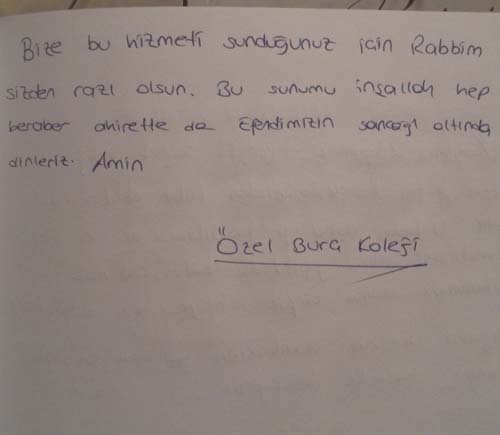 Bize bu hizmeti sunduğunuz için Rabbim
sizden razı olsun. Bu sunumu inşallah hep
beraber ahirette de Efendimizin sancağı altında
dinleriz. Amin
Özel Burç Koleji